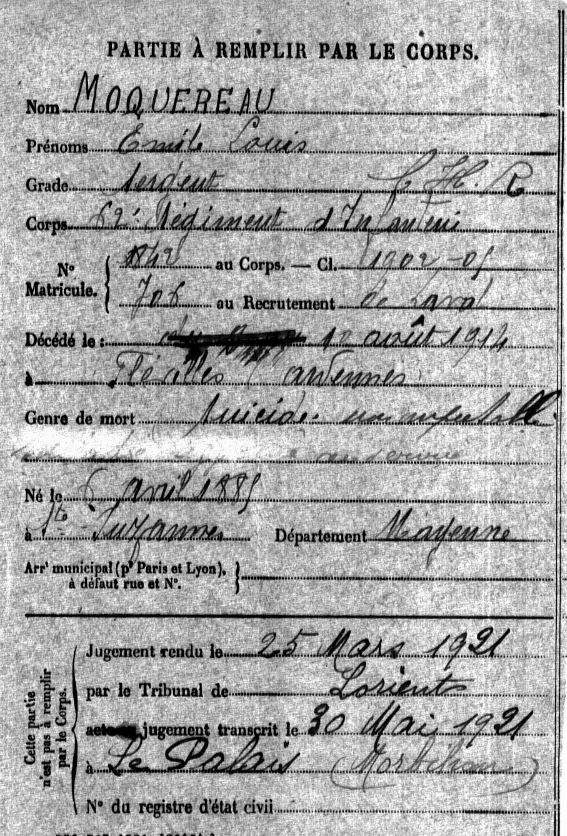 PARTIE À REMPLIR PAR LE CORPS.
Nom MOQUEREAU
Prénoms Emile Louis
Grade Sergent C H R
Corps 62e Régiment d'Infanterie
N° Matricule. 1842 au Corps. — Cl. 1902-05
708 au Recrutement de Laval
Décédé le : août 1914
à ardennes
Genre de mort Suicide
Né le 5 avril 1885
à Ste Suzanne Département Mayenne
Arrt municipal (pr Paris et Lyon),
à défaut rue et N°.
Cette partie n'est pas à remplir par le Corps.
Jugement rendu le 25 Mars 1921
par le Tribunal de Lorient
acte jugement transcrit le 30 Mai 1921
à Le Palais (Morbihan)
N° du registre d'état civil